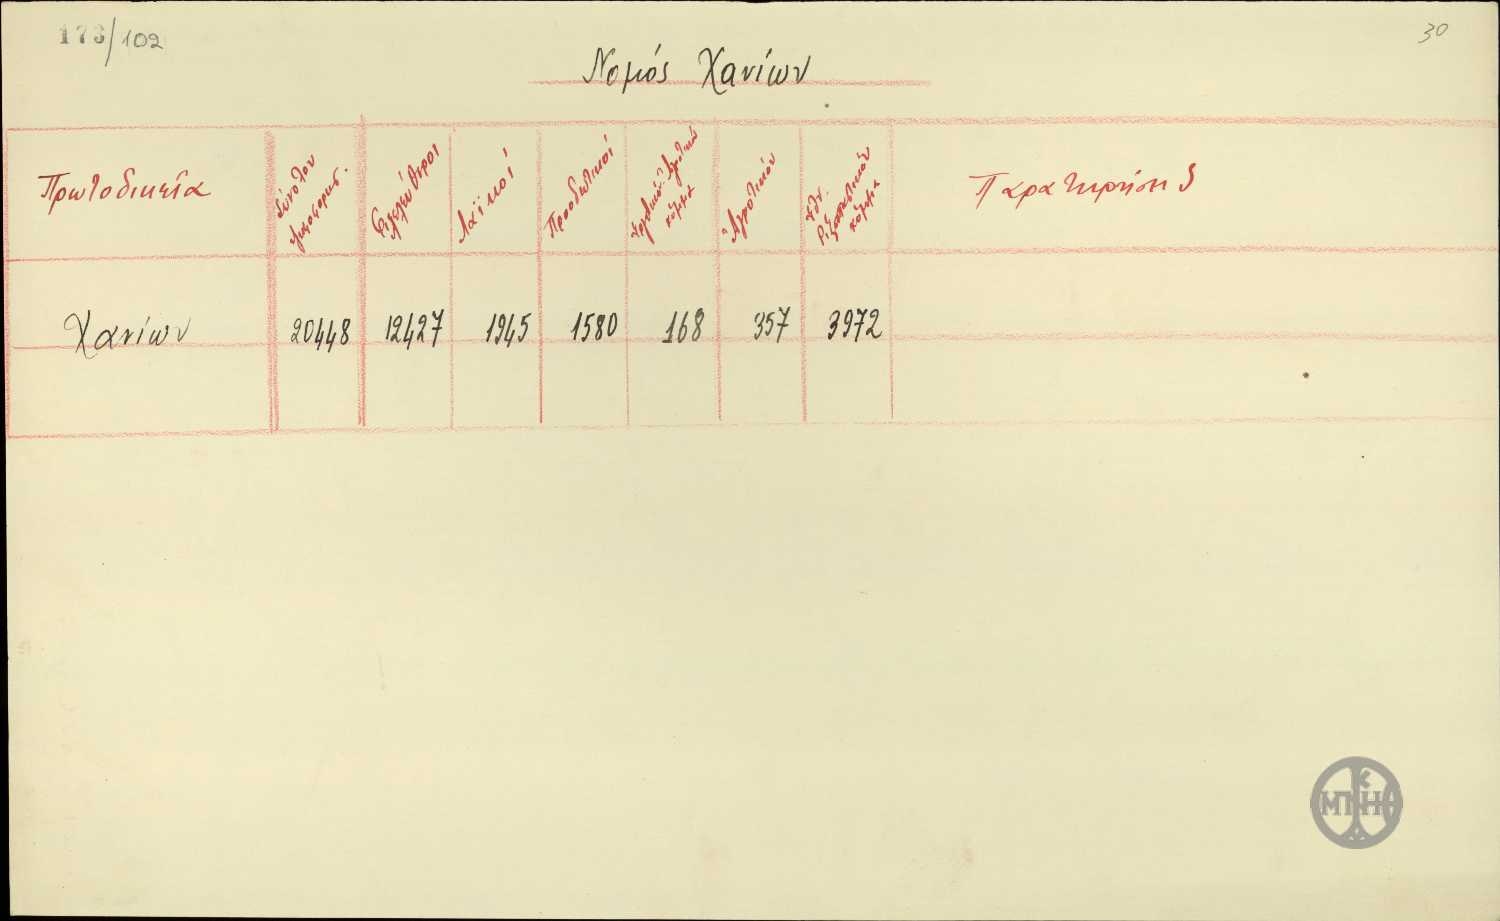 173/102
30
Νομός Χανίων
Πρωτοδικεῖα
Σύνολον
ψηφοφορησ.
Φιλελεύθεροι
Λαϊκοί
Προοδευτικοί
κόμμα
Ἀγροτικόν
Ἐθν.
Ριζοσπαστικόν
κόμμα
Παρατηρήσεις
Χανίων 20448 12427 1945 1580 168 357 3972